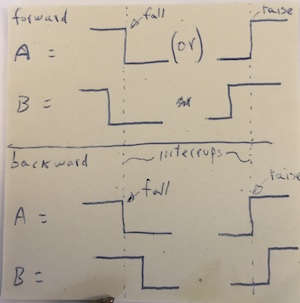 forward fall raise
A = (or)
B =
backward interrups
fall raise
A =
B =